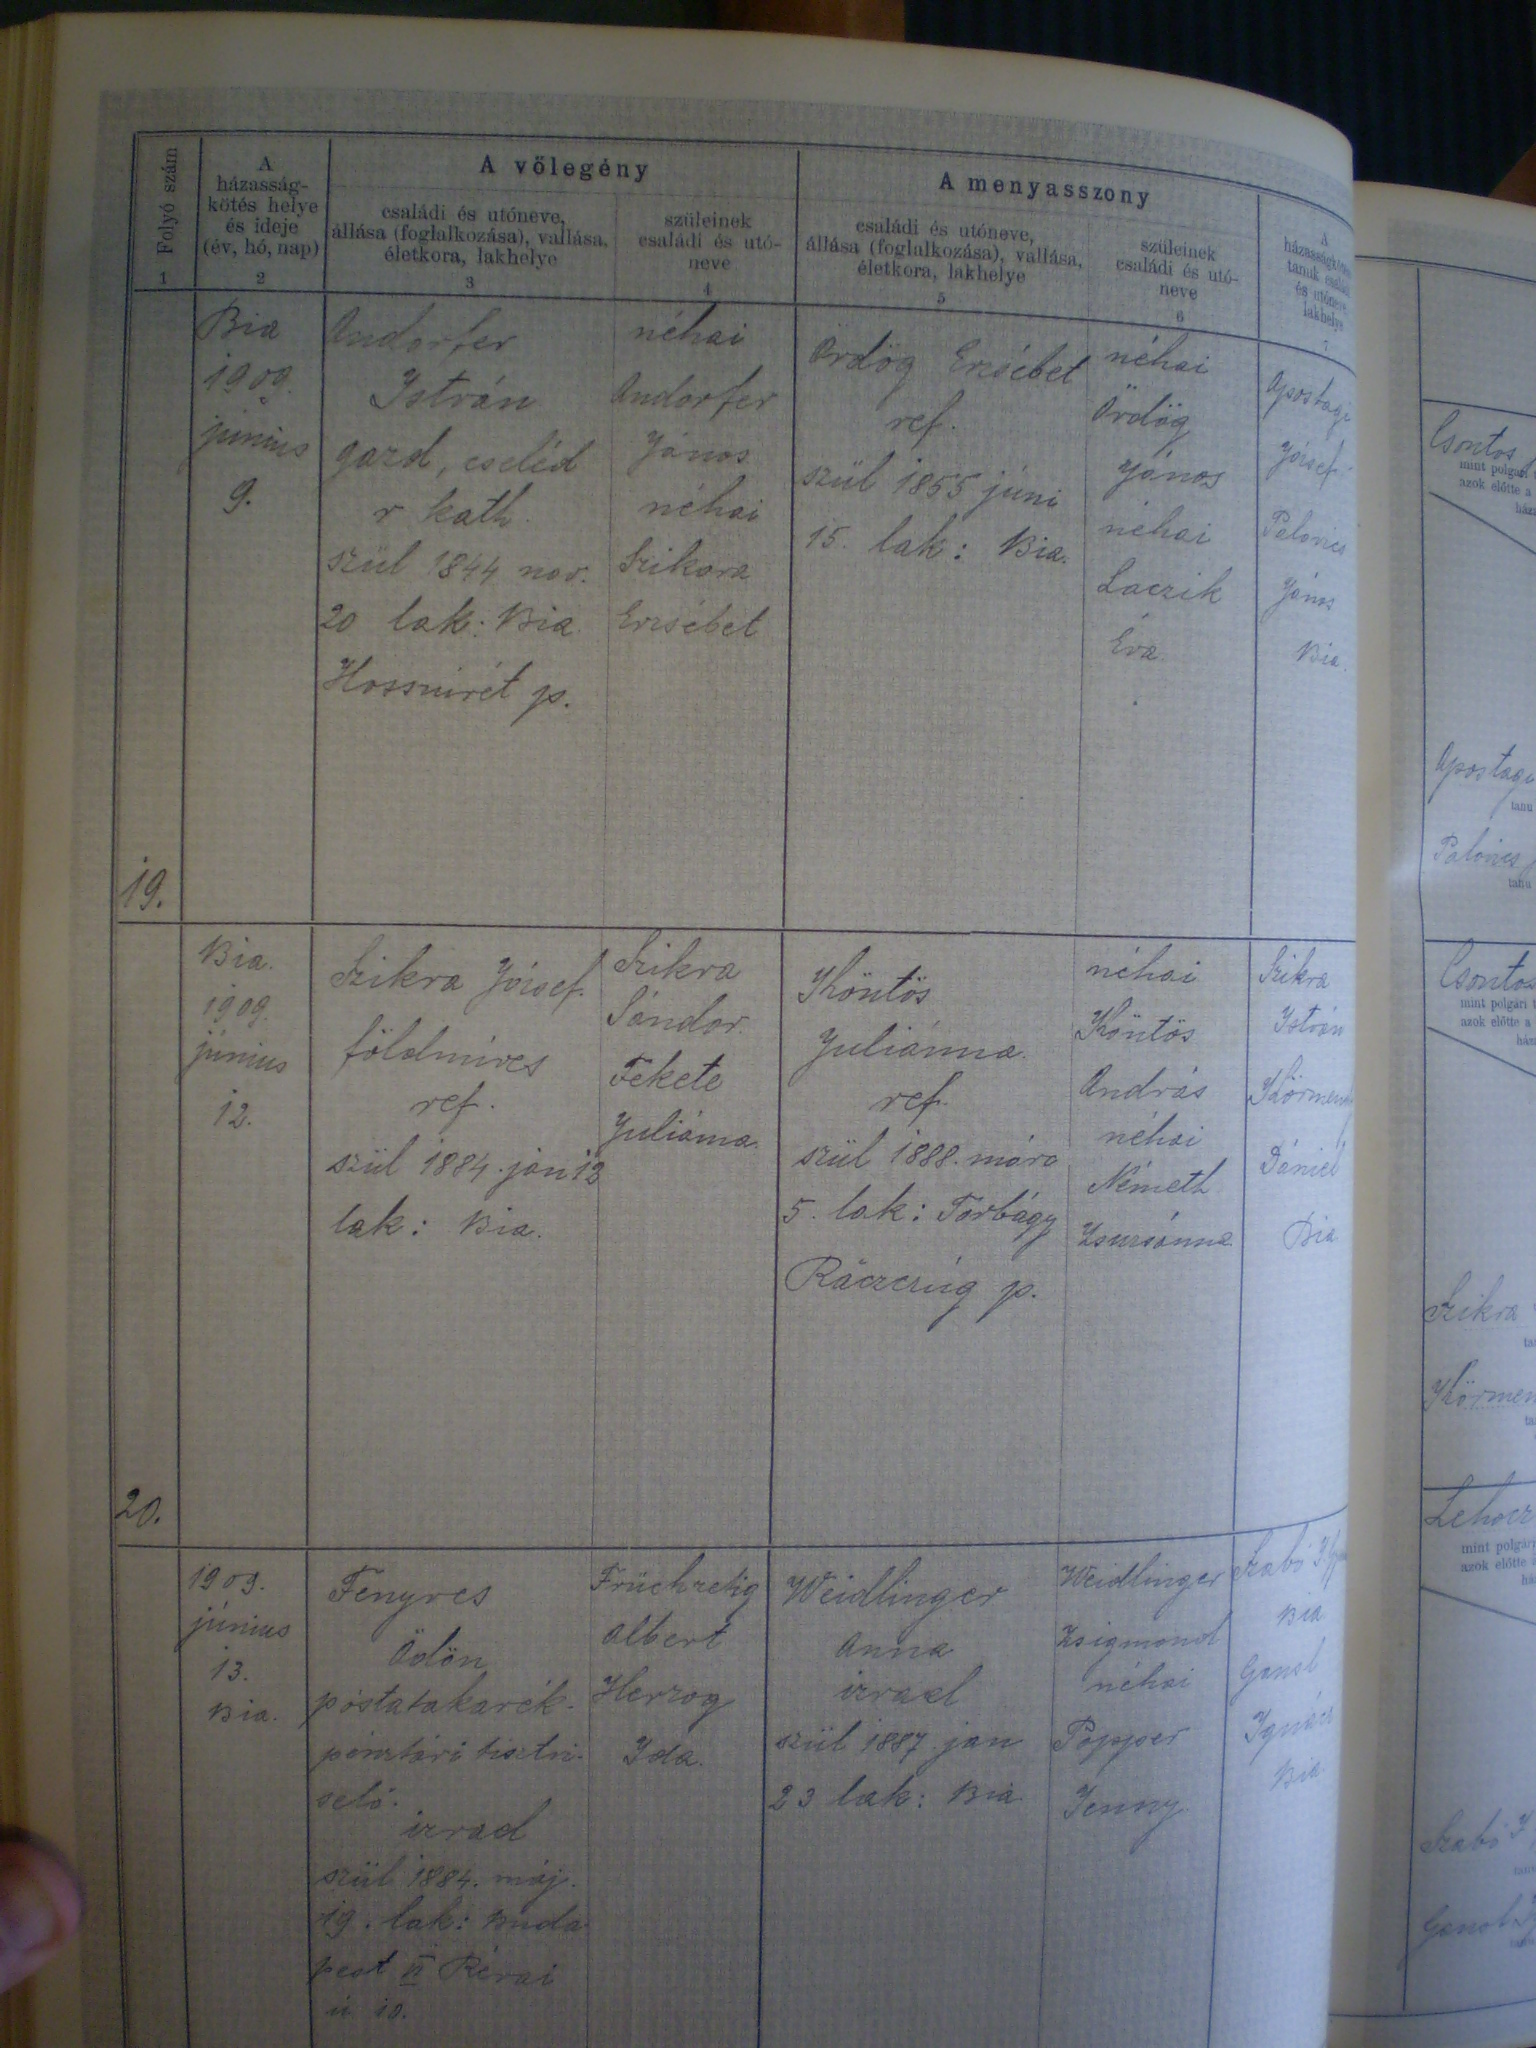 Folyó szám
1
A
házasság-
kötés helye
és ideje
(év, hó, nap)
2
A vőlegény
családi és utóneve,
állása (foglalkozása), vallása,
életkora, lakhelye
3
szüleinek
családi és utó-
neve
4
A menyasszony
családi és utóneve,
állása (foglalkozása), vallása,
életkora, lakhelye
5
szüleinek
családi és utó-
neve
6
A
tanuk
és utóneve
lakhelye
7
19.
Bia
1909.
június
9.
Andorfer
István
gazd, cseléd
r kath.
szül 1844 nov.
20 lak: Bia
p.
néhai
Andorfer
János
néhai
Szikora
Erzsébet
Ördög Erzsébet
ref.
szül 1855 júni
15. lak: Bia.
néhai
Ördög
János
néhai
Laczik
Éva
Apostagi
József
Palovics
János
Bia.
20.
Bia.
1909.
június
12.
Szikra József.
földmíves
ref.
szül 1884. jan 12
lak: Bia.
Szikra
Sándor.
Fekete
Juliánna.
Köntös
Juliánna.
ref.
szül 1888. márc
5. lak: Torbágy
p.
néhai
Köntös
András
néhai
Németh
Zsuzsánna
Szikra
István
Dániel
Bia
1909.
június
13.
Bia.
Fenyves
Ödön
postatakarék-
pénztári tisztvi-
selő.
izrael
szül 1884. máj.
19. lak: Buda
pest VI Révai
u 10.
Früchzelig
Albert
Herzog
Ida.
Weidlinger
Anna
izrael
szül 1887 jan
23 lak: Bia
Weidlinger
Zsigmond
néhai
Popper
Jenny
Szabó
Bia
Gansl
Ignácz
Bia
Csontos
mint polgári
azok előtte a
Apostagi
tanu
Palovics
tanu
Csontos
mint polgári t
azok előtte a
Szikra
mint polgári
azok előtte
Szabó
Gansl